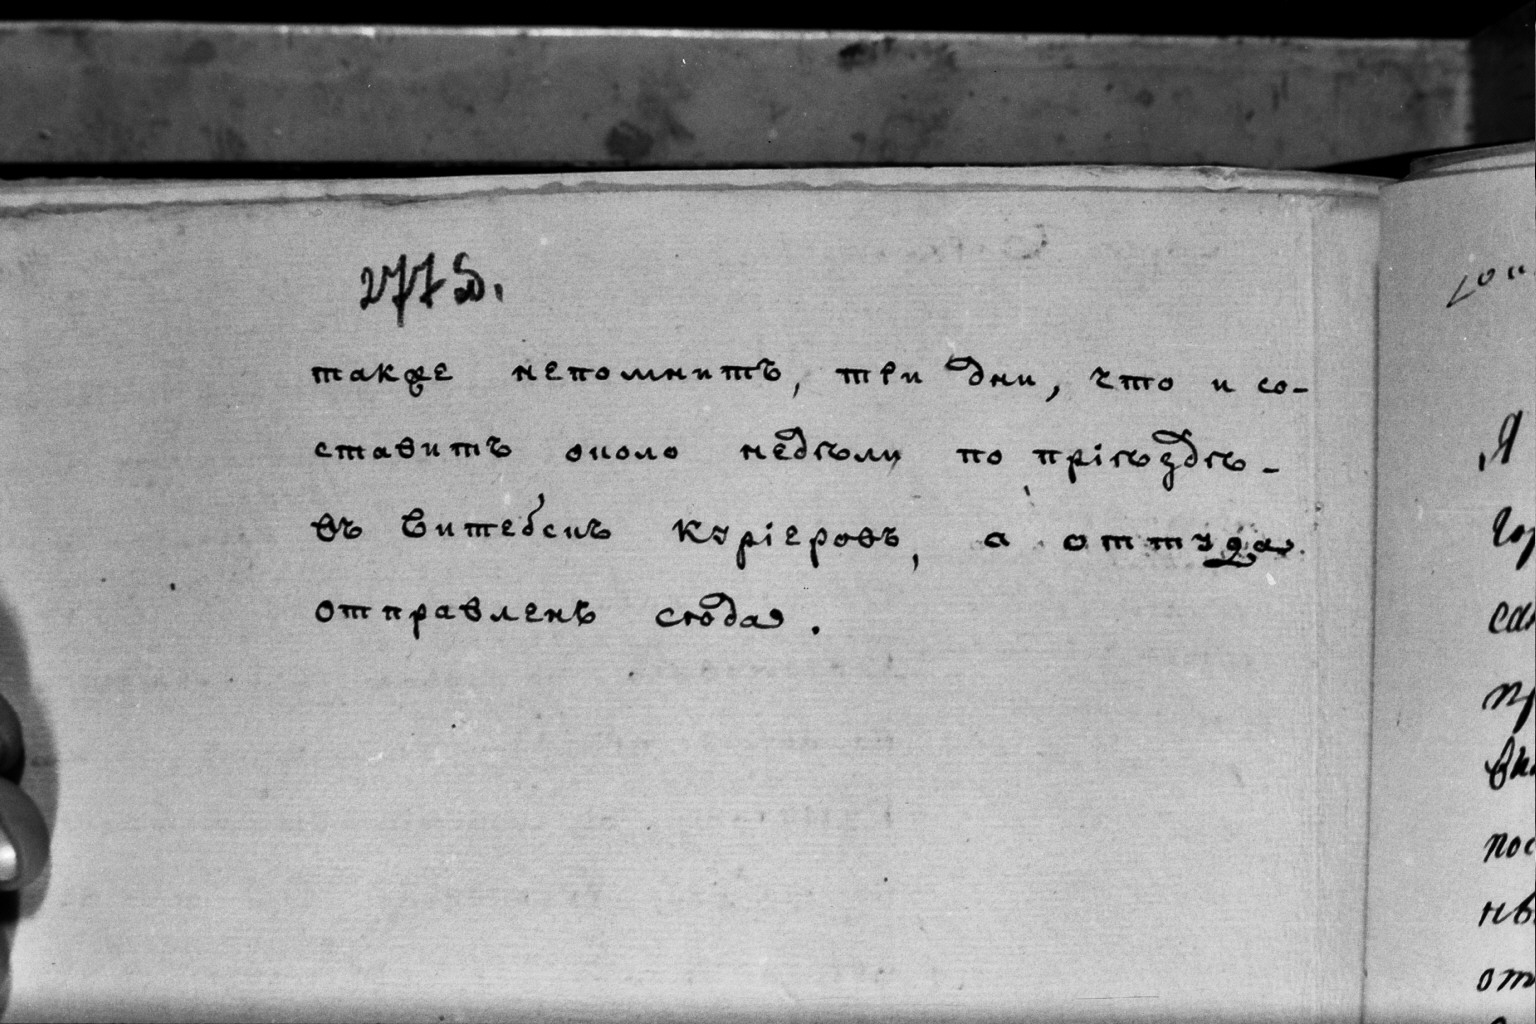 277 Д.
также непомнитъ, три дни, что и со-
ставитъ около недѣли по пріѣздѣ -
въ Витебскъ Куріеровъ, а оттуда
отправленъ сюда.
Я